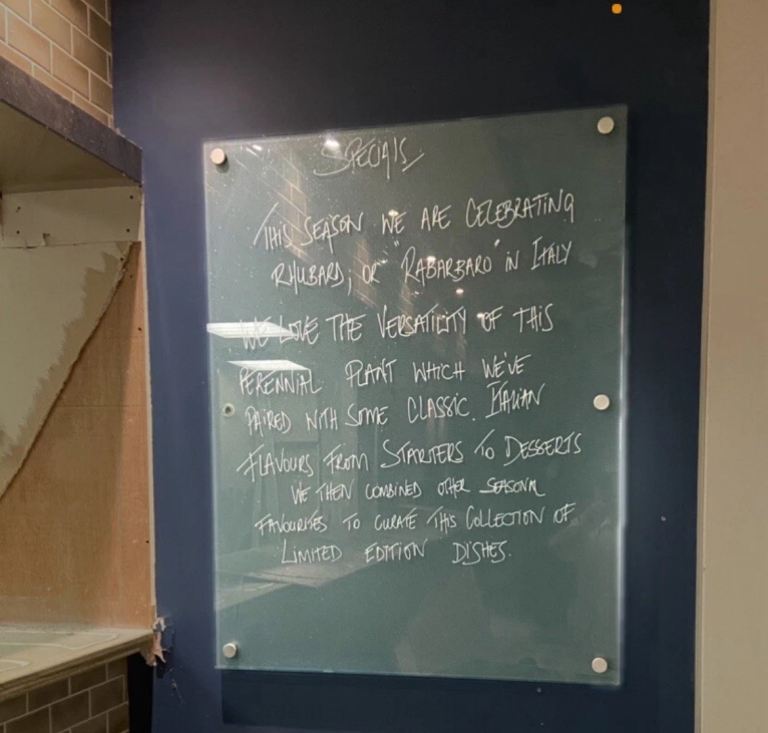 SPECIALS
THIS SEASON WE ARE CELEBRATING
RHUBARD, OR "RABARBARO" IN ITALY
WE LOVE THE VERSATILITY OF THIS
PERENNIAL PLANT WHICH WE'VE
PAIRED WITH SOME CLASSIC ITALIAN
FLAVOURS FROM STARTERS TO DESSERTS
WE THEN COMBINED OTHER SEASONAL
FAVOURITES TO CURATE THIS COLLECTION OF
LIMITED EDITION DISHES.